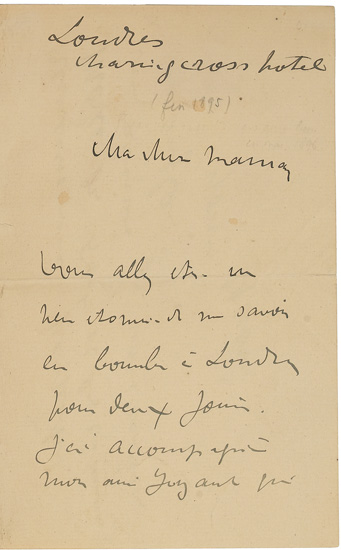 Londres
Charing cross hotel
(fin 1895)
Ma chère Maman
Vous allez être un
peu étonnée de me savoir
en bombe à Londres
pour deux jours.
j'ai accompagné
mon ami Joyant qui